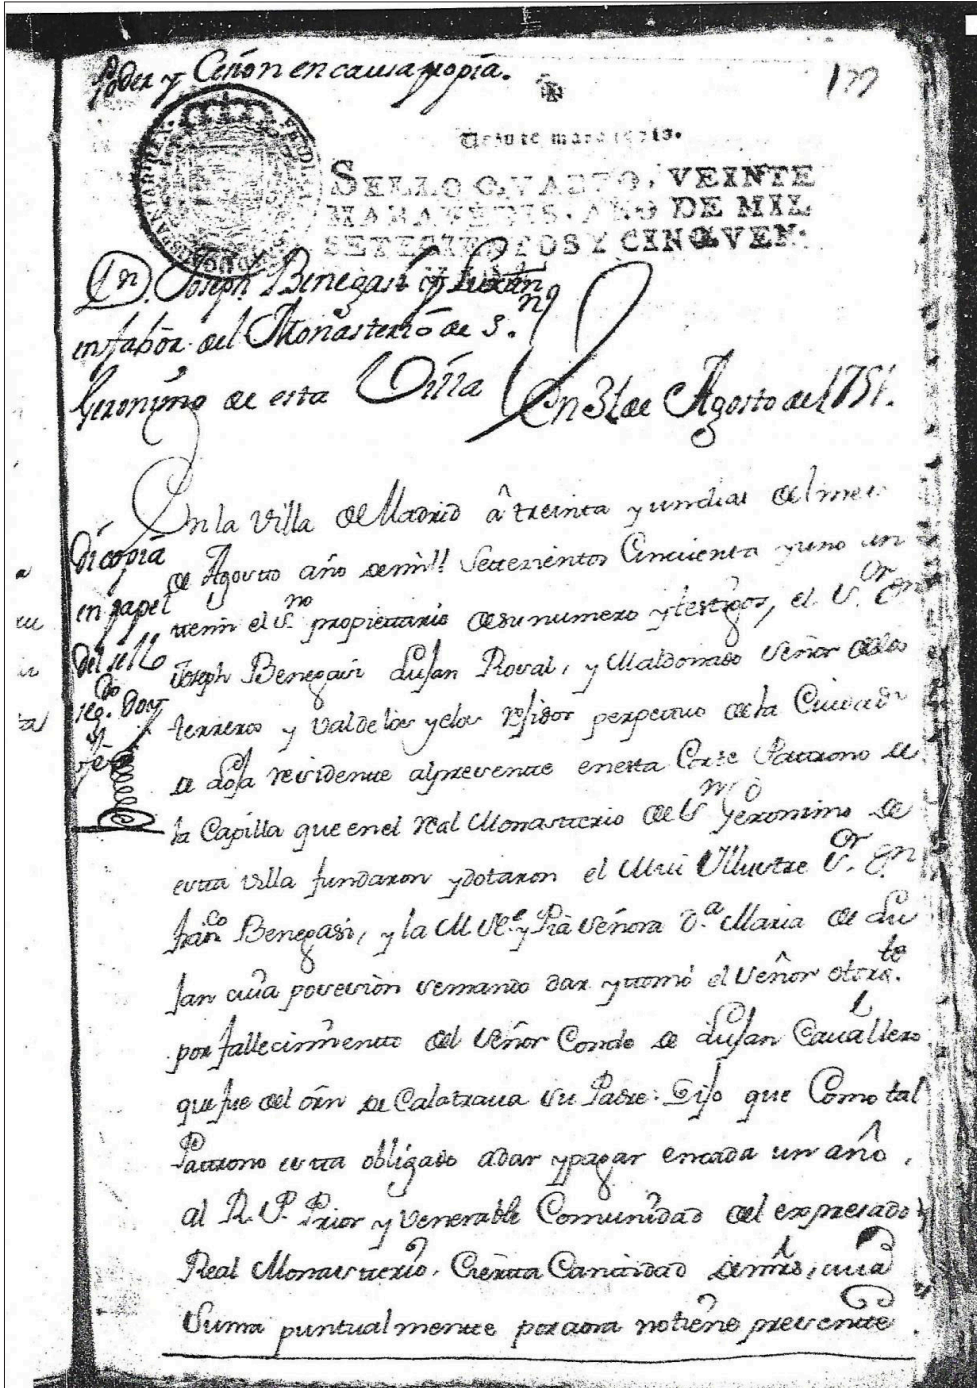 Poder y Cesion en causa propia.
177
Veinte maravedis.
SELLO QVARTO, VEINTE
MARAVEDIS, AÑO DE MIL
SETECIENTOS Y CINQVEN:
Dn. Joseph Benegasi y Luxan
en fabor del Monasterio de S.n
Geronimo de esta Villa
En 31 de Agosto de 1751.
En la Villa de Madrid â treinta y un dias del mes
de Agosto año de mill Setezientos Cinquenta y uno an
temi el S.no propietario de su numero y testigos, el S.or Dn
Joseph Benegasi Lujan Roval, y Maldonado Señor de los
terreros y Valdelos yelos rejidor perpetuo de la Ciudad
de Loja residente al presente en esta Corte Patrono de
la Capilla que en el Real Monasterio de S.n Geronimo de
esta villa fundaron y dotaron el Mui Illustre S.or Dn
Fran.co Benegasi, y la M Ve. y Pia Señora D.a Maria de Lu
jan cuia posesiòn semando dar y tomó el Señor otorg.te
por fallecimiento del Señor Conde de Lujan Cavallero
que fue del òrn de Calatraua su Padre: Dijo que Como tal
Patrono esta obligado adar y pagar encada un año,
al R. P. Prior y Venerable Comunidad del expresado
Real Monasterio, Cierta Cantidad de mrs, cuia
Suma puntualmente por aora no tiene presente
di copia
en papel
del sello
seg.do Doy
fe